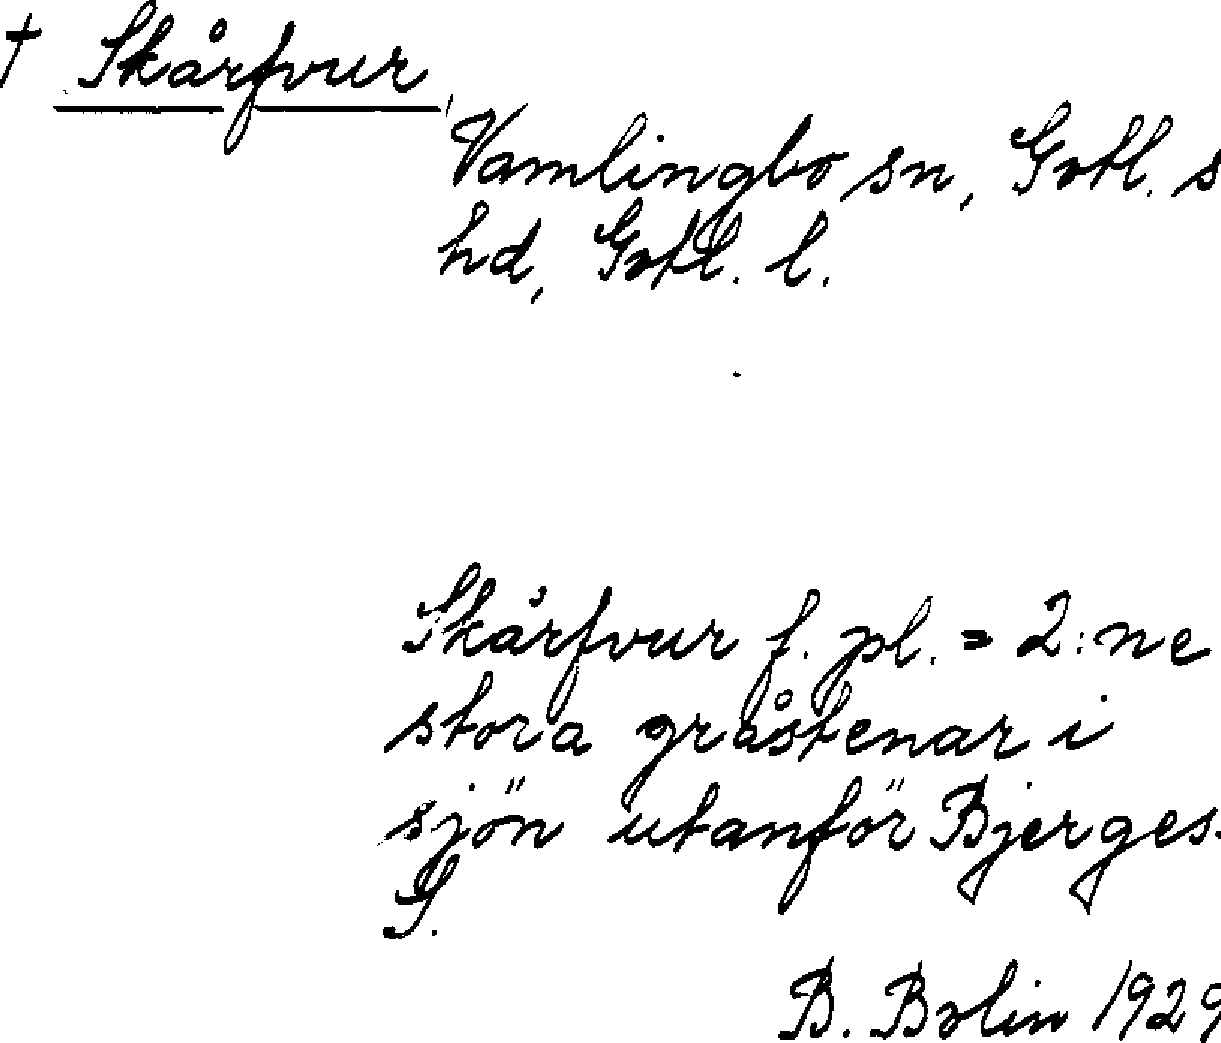 † Skårfvur
Vamlingbo sn, Gotl. s
hd, Gotl. l.
Skårfvur f. pl. = 2:ne
stora gråstenar i
sjön utanför Bjerges.
S.
B. Bolin 1929